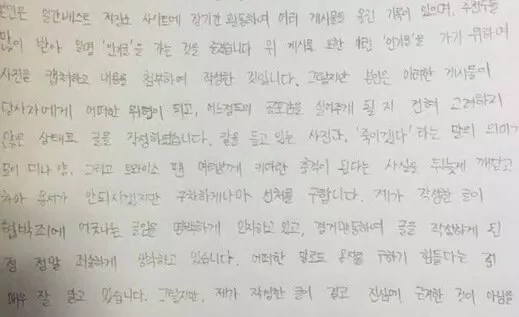 본인은 일간베스트 저장소 사이트에 장기간 활동하며 여러 게시물을 올린 기록이 있으며, 추천수를
많이 받아 일명 '인기글'을 가는 것을 즐겼습니다. 위 게시물 또한 '인기글'을 가기 위하여
사진을 캡쳐하고 내용을 첨부하여 작성한 것입니다. 그렇지만 본인은 이러한 게시물이
당사자에게 어떠한 위협이 되고, 어느정도의 공포감을 심어주게 될 지 전혀 고려하지
않은 상태로 글을 작성하였습니다. 칼을 들고 있는 사진과, '죽이겠다' 라는 말의 의미가
미나 양, 그리고 트와이스 팬 여러분께 커다란 충격이 된다는 사실을 뒤늦게 깨닫고
용서가 안되시겠지만 구차하게나마 선처를 구합니다. 제가 작성한 글이
협박죄에 어긋나는 글임을 명백하게 인지하고 있고, 글을 작성하게 된
점 정말 죄송하게 생각하고 있습니다. 어떠한 말로도 용서를 구하기 힘들다는 것
매우 잘 알고 있습니다. 그렇지만, 제가 작성한 글이 결코 진심에 근거한 것이 아님을